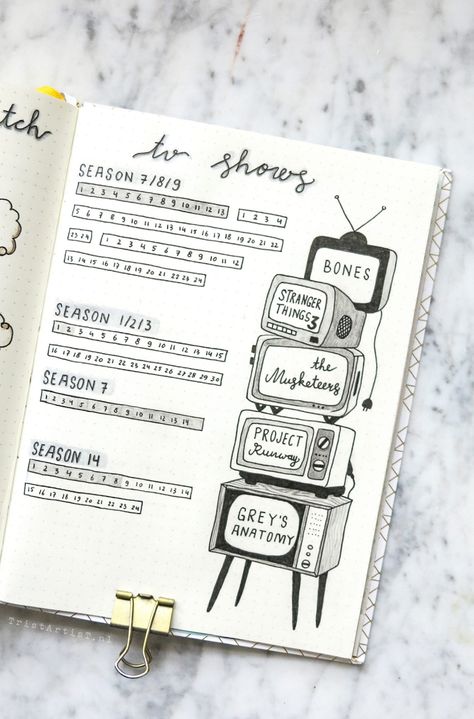 tch
tv shows
SEASON 7/8/9
1 2 3 4 5 6 7 8 9 10 11 12 13 1 2 3 4
5 6 7 8 9 10 11 12 13 14 15 16 17 18 19 20 21 22
23 24 1 2 3 4 5 6 7 8 9 10 11 12
13 14 15 16 17 18 19 20 21 22 23 24
SEASON 1/2/3
1 2 3 4 5 6 7 8 9 10 11 12 13 14 15
16 17 18 19 20 21 22 23 24 25 26 27 28 29 30
SEASON 7
1 2 3 4 5 6 7 8 9 10 11 12 13 14
SEASON 14
1 2 3 4 5 6 7 8 9 10 11 12 13 14
15 16 17 18 19 20 21 22 23 24
BONES
STRANGER
THINGS 3
the
Musketeers
PROJECT
Runway
GREY'S
ANATOMY
TristArtisT.nl